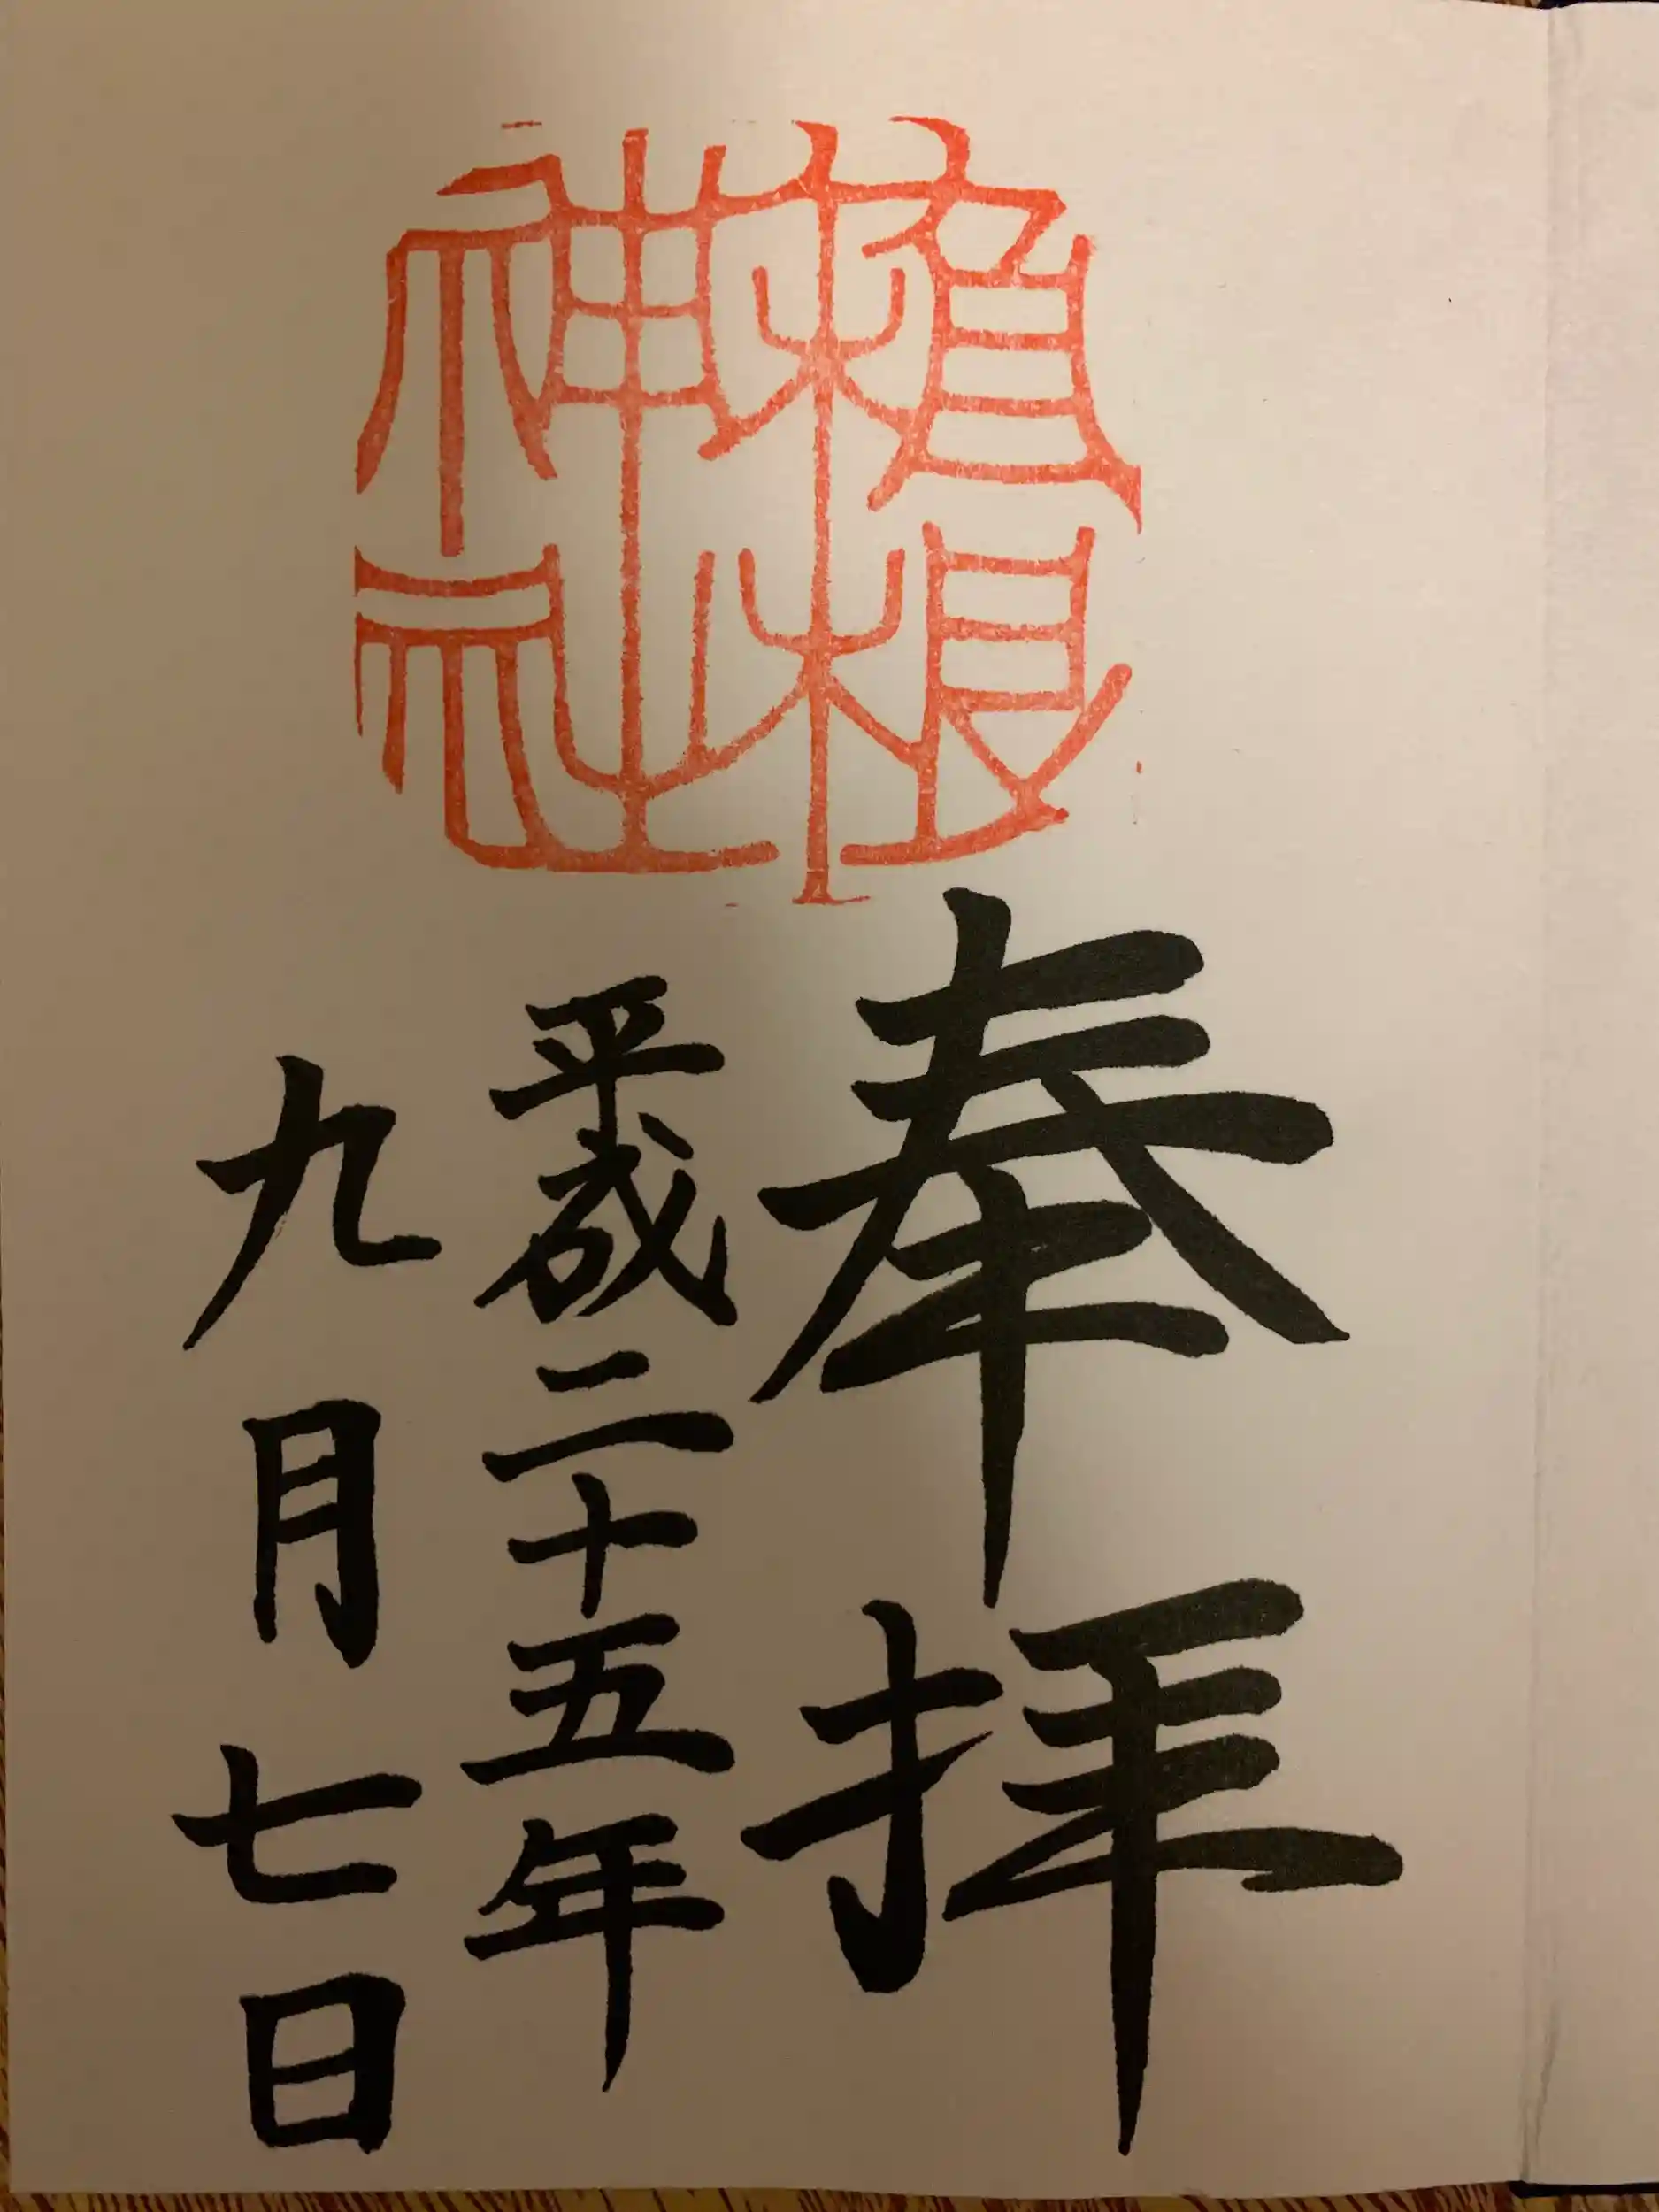 神社
奉拝
平成二十五年
九月七日